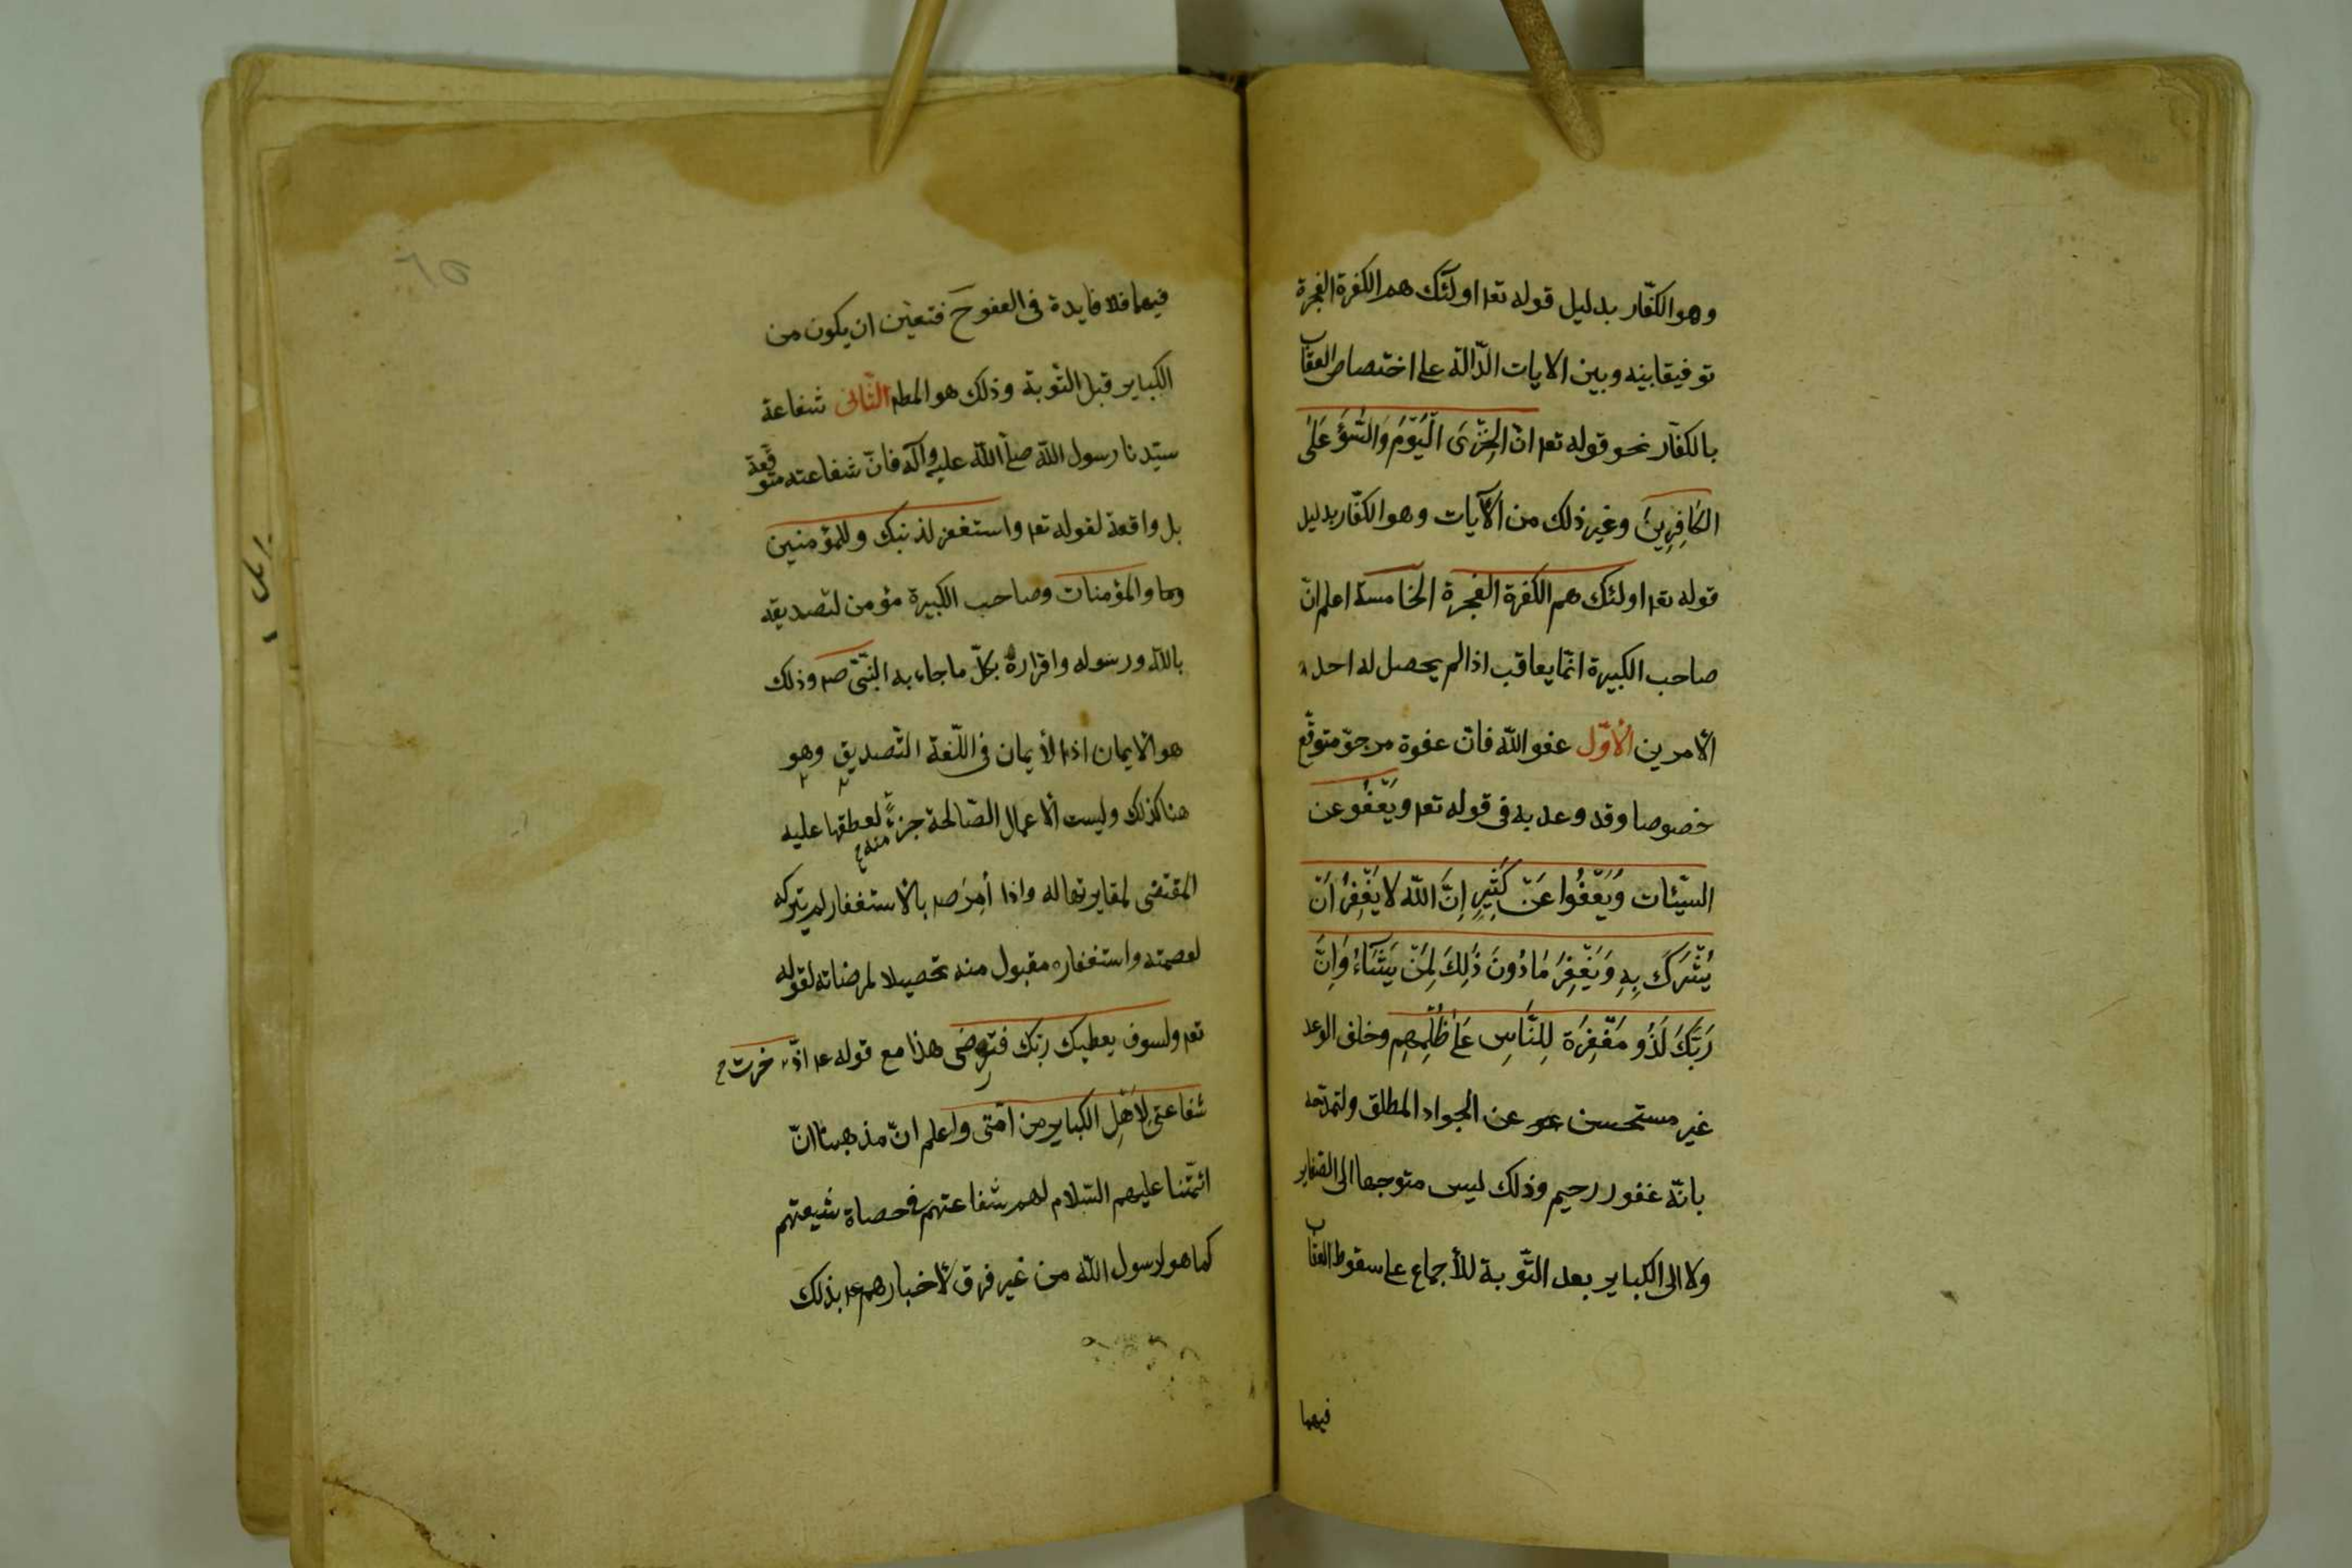 وهو الكفّار بدليل قوله تعم اولئك هم الكفرة الفجرة
توفيقا بينه وبين الايات الدّالة على اختصاص العقاب
بالكفّار نحو قوله تعم انّ الخِزْىَ الْيَوْمَ وَالسُّوءَ عَلَى
الكَافِرِينَ وغير ذلك من الآيات وهو الكفّار بدليل
قوله تعم اولئك هم الكفرة الفجرة الخامسة اعلم انّ
صاحب الكبيرة انّما يعاقب اذا لم يحصل له احد
الامرين الأوّل عفو اللّه فانّ عفوه مرجوّ متوقّع
خصوصا وقد وعد به فى قوله تعم ويَعْفُو عن
السيّئات وَيَعْفُوا عَنْ كَثِيرٍ اِنَّ اللّه لا يَغْفِرُ اَنْ
يُشْرَكَ بِهِ وَيَغْفِرُ مَا دُونَ ذَلِكَ لِمَنْ يَشَآءُ وَاِنَّ
رَبَّكَ لَذُو مَغْفِرَة لِلنَّاسِ عَلَى ظُلْمِهِم وخلف الوعد
غير مستحسن عن الجواد المطلق ولتمدّحه
بانّه غفور رحيم وذلك ليس متوجها الى الصّغاير
ولا الى الكباير بعد التّوبة للأجماع على سقوط العقاب
فيهما
٦٥
فيهما فلا فايدة فى العفو ح فتعيّن ان يكون من
الكباير قبل التّوبة وذلك هو المطم الثّانى شفاعة
سيّدنا رسول اللّه صلّى اللّه عليه وآله فانّ شفاعته متوقّعة
بل واقعة لقوله تعم واستغفر لذنبك وللمؤمنين
والمؤمنات وصاحب الكبيرة مؤمن لتصديقه
باللّه ورسوله واقراره بكلّ ما جاء به النّبىّ صم وذلك
هو الايمان اذ الأيمان فى اللّغة التّصديق وهو
هنا كذلك وليست الاعمال الصّالحة جزءً منه لعطفها عليه
المقتضى لمغايرتها له واذا أُمِرَ صم بالاستغفار لم يتركه
لعصمته واستغفاره مقبول منه تحصيلا لمرضاته لقوله
تعم ولسوف يعطيك ربّك فترضى هذا مع قوله عم ادّخرت
شفاعتى لِأَهْلِ الكباير من امّتى واعلم انّ مذهبنا انّ
ائمّتنا عليهم السّلام لهم شفاعتهم فى عصاة شيعتهم
كما هو لرسول اللّه من غير فرق لاخبارهم عم بذلك